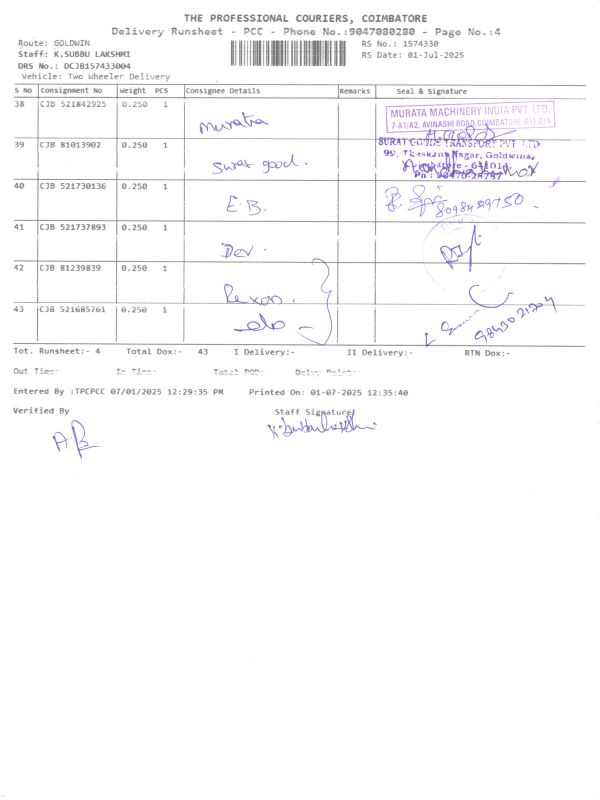 THE PROFESSIONAL COURIERS, COIMBATORE
Delivery Runsheet - PCC - Phone No.:9047080280 - Page No.:4
Route: GOLDWIN
RS No.: 1574330
Staff: K.SUBBU LAKSHMI
RS Date: 01-Jul-2025
DRS No.: DCJB157433004
Vehicle: Two Wheeler Delivery
S No Consignment No Weight PCS Consignee Details Remarks Seal & Signature
38 CJB 521842925 0.250 1
Murata
MURATA MACHINERY INDIA PVT. LTD.
7-A1/A2, AVINASHI ROAD, COIMBATORE-641 014
39 CJB 81013902 0.250 1
Surat good.
SURAT GOODS TRANSPORT PVT LTD
99, Nagar, Goldwins,
- 641014
Ph : 90470-28787
40 CJB 521730136 0.250 1
E.B.
8098429750
41 CJB 521737893 0.250 1
Dev.
42 CJB 81239839 0.250 1
Rexon.
43 CJB 521685761 0.250 1
-do-
Tot. Runsheet:- 4 Total Dox:- 43 I Delivery:- II Delivery:- RTN Dox:-
Out Time:- In Time:- Total POD:-
Entered By :TPCPCC 07/01/2025 12:29:35 PM Printed On: 01-07-2025 12:35:40
Verified By Staff Signature